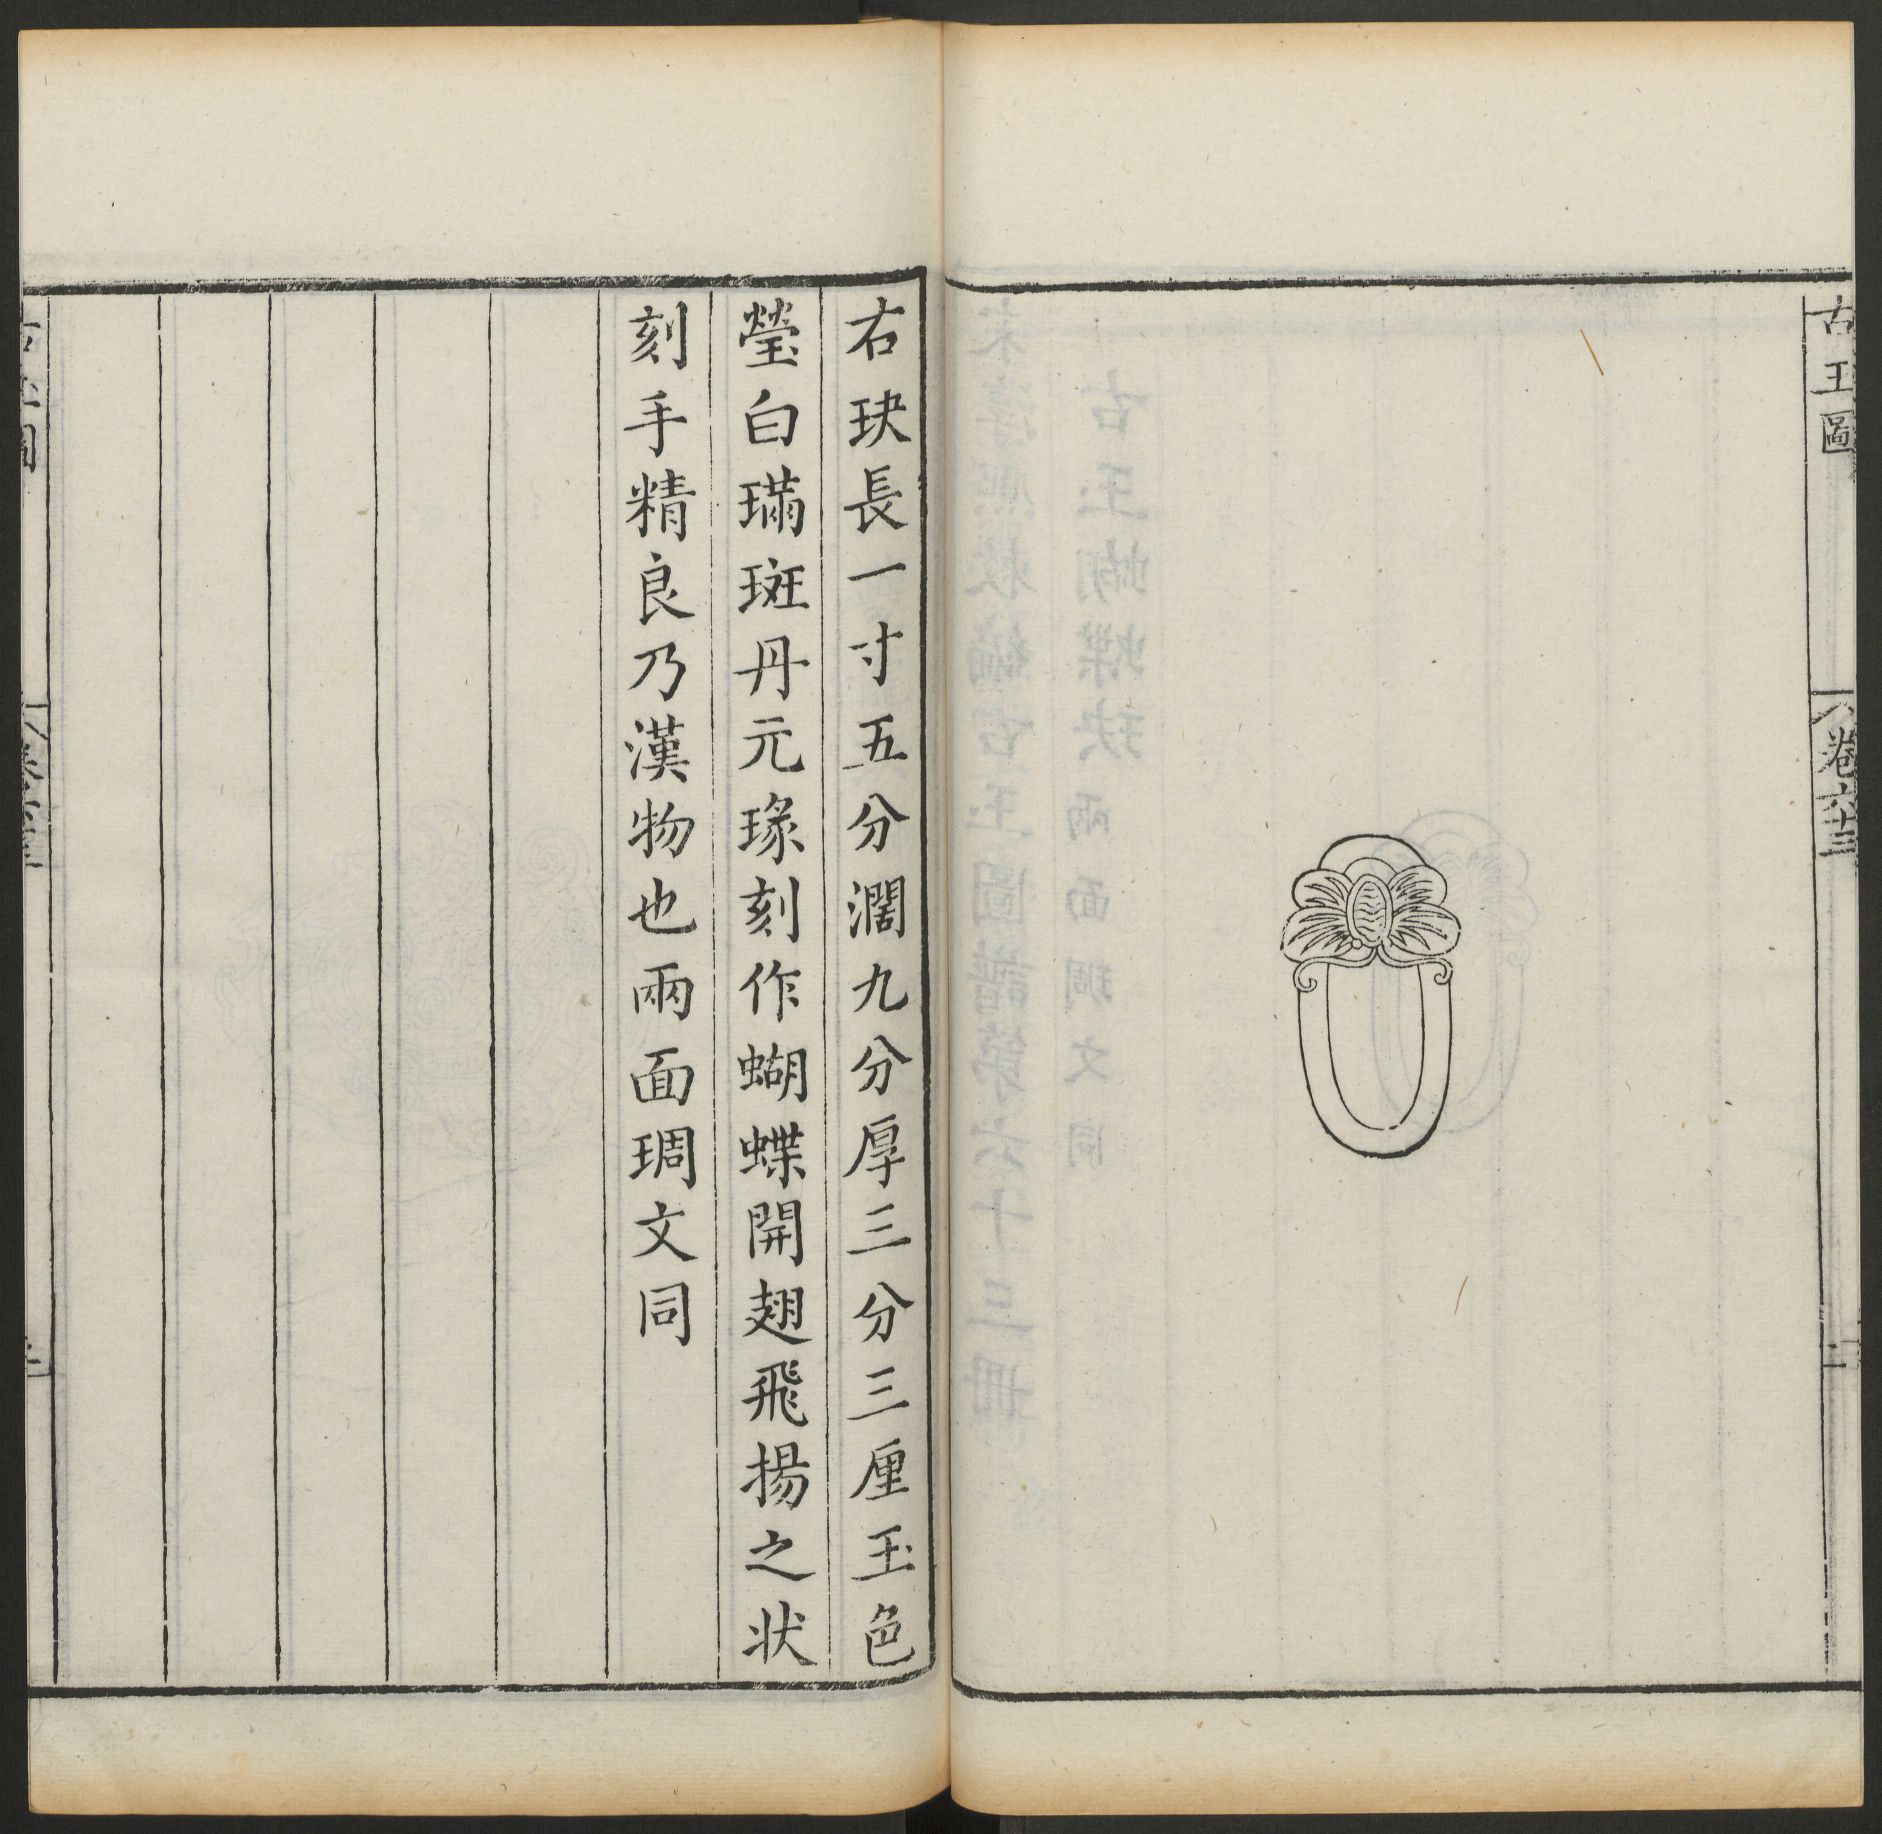 古玉圖
卷六十三
二
右玦長一寸五分濶九分厚三分三厘玉色
瑩白璊斑丹元瑑刻作蝴蝶開翅飛揚之状
刻手精良乃漢物也兩面琱文同